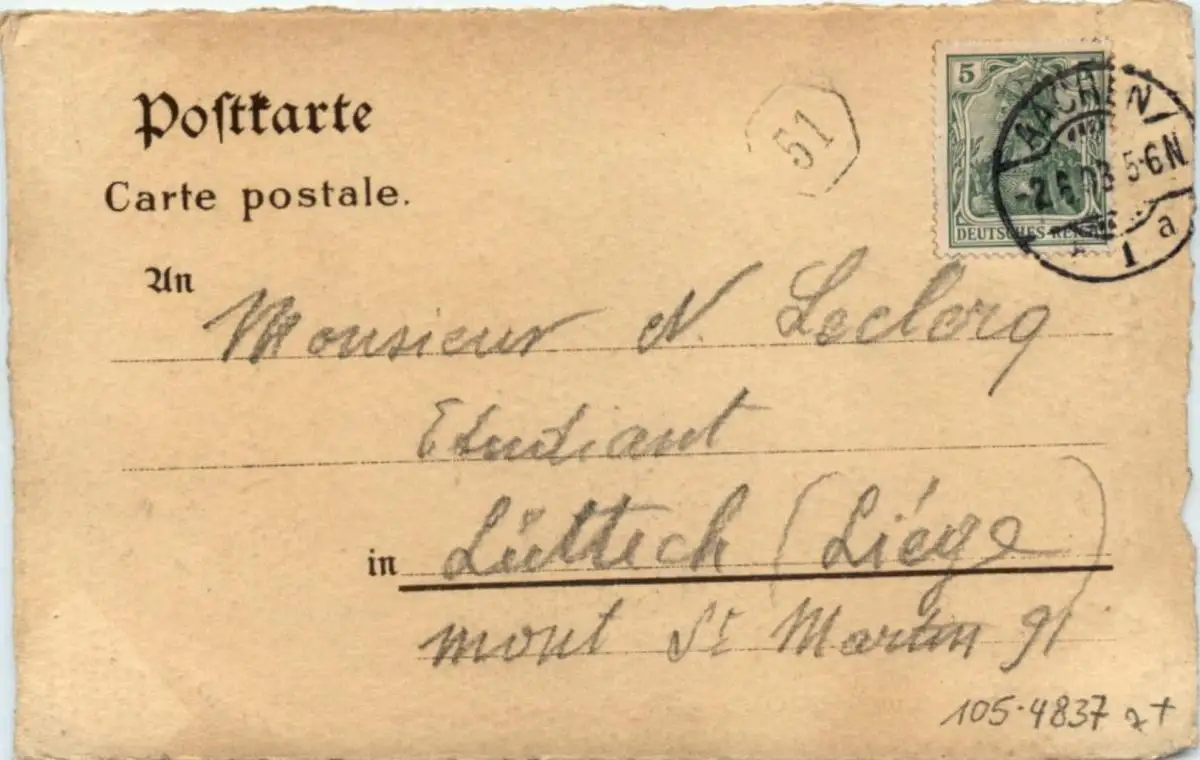 Postkarte
Carte postale.
51
5
DEUTSCHES REICH
AACHEN
-2.6.03 5-6N
1 a
An
Monsieur N. Leclerq
Etudiant
in Lüttech (Liége)
mont St Martin 91
105-4837